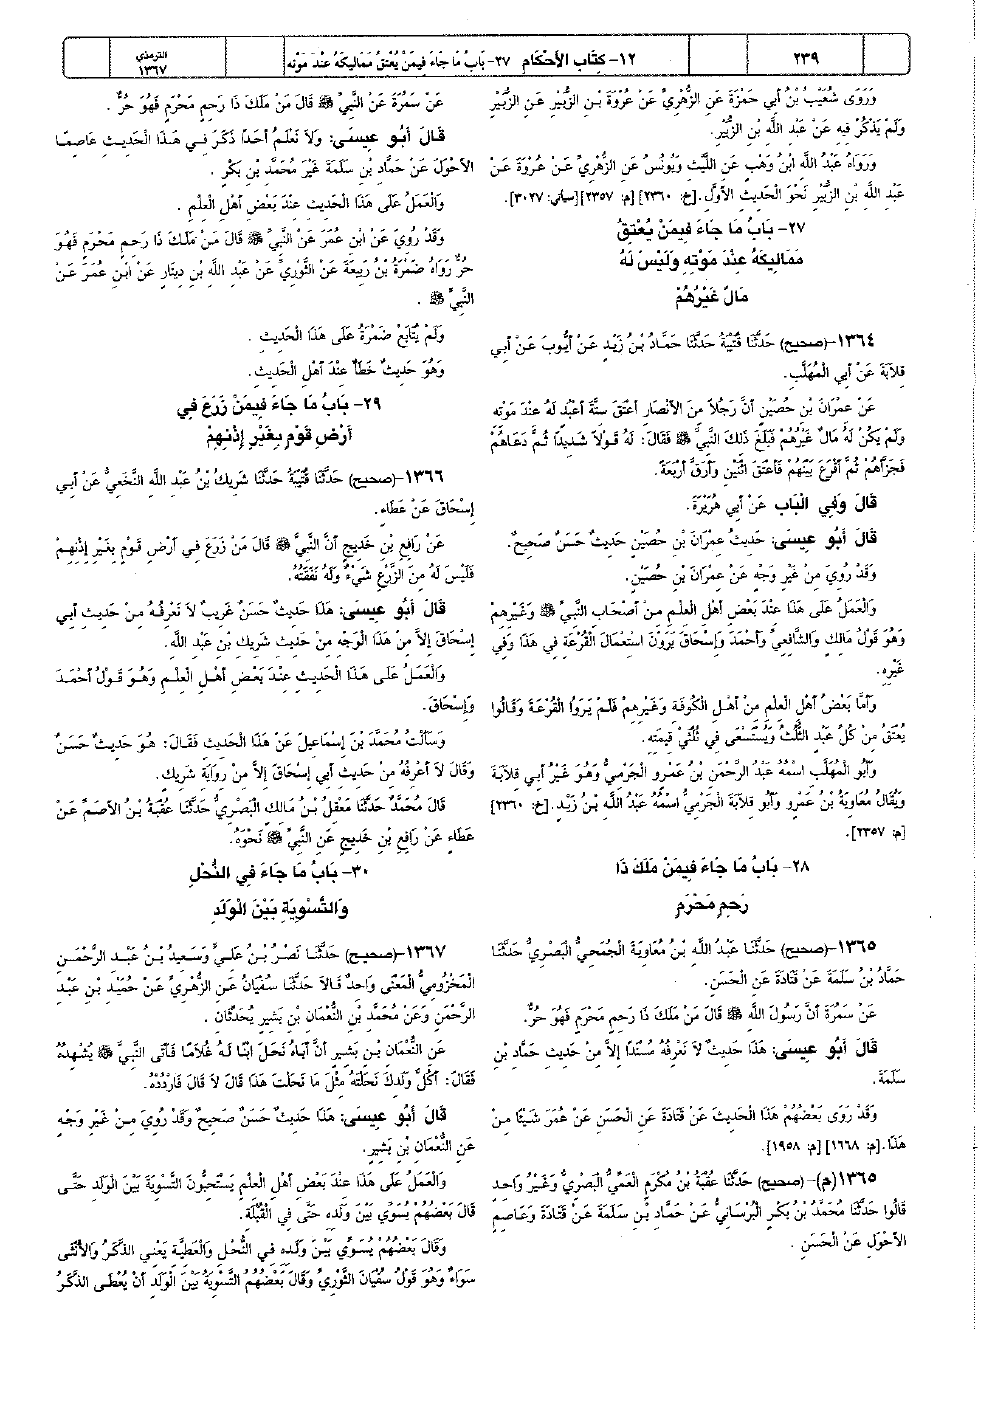 ٢٣٩
١٢- كِتَاب الأَحْكَامِ ٢٧- بَابُ مَا جَاءَ فِيمَنْ يُعْتِقُ مَمَالِيكَهُ عِنْدَ مَوْتِه
الترمذي
١٣٦٧
وَرَوَى شُعَيْبُ بْنُ أَبِي حَمْزَةَ عَنِ الزُّهْرِيِّ عَنْ عُرْوَةَ بْنِ الزُّبَيْرِ عَنِ الزُّبَيْرِ
وَلَمْ يَذْكُرْ فِيهِ عَنْ عَبْدِ اللَّهِ بْنِ الزُّبَيْرِ.
وَرَوَاهُ عَبْدُ اللَّهِ ابْنُ وَهْبٍ عَنِ اللَّيْثِ وَيُونُسَ عَنِ الزُّهْرِيِّ عَنْ عُرْوَةَ عَنْ
عَبْدِ اللَّهِ بْنِ الزُّبَيْرِ نَحْوَ الْحَدِيثِ الأَوَّلِ.[خ: ٢٣٦٠] [م: ٢٣٥٧] [سيأتي: ٣٠٢٧].
٢٧- بَابُ مَا جَاءَ فِيمَنْ يُعْتِقُ
مَمَالِيكَهُ عِنْدَ مَوْتِهِ وَلَيْسَ لَهُ
مَالٌ غَيْرُهُمْ
١٣٦٤-(صحيح) حَدَّثَنَا قُتَيْبَةُ حَدَّثَنَا حَمَّادُ بْنُ زَيْدٍ عَنْ أَيُّوبَ عَنْ أَبِي
قِلاَبَةَ عَنْ أَبِي الْمُهَلَّبِ.
عَنْ عِمْرَانَ بْنِ حُصَيْنٍ أَنَّ رَجُلاً مِنَ الأَنْصَارِ أَعْتَقَ سِتَّةَ أَعْبُدٍ لَهُ عِنْدَ مَوْتِهِ
وَلَمْ يَكُنْ لَهُ مَالٌ غَيْرُهُمْ فَبَلَغَ ذَلِكَ النَّبِيَّ ﷺ فَقَالَ: لَهُ قَوْلاً شَدِيدًا ثُمَّ دَعَاهُمْ
فَجَزَّأَهُمْ ثُمَّ أَقْرَعَ بَيْنَهُمْ فَأَعْتَقَ اثْنَيْنِ وَأَرَقَّ أَرْبَعَةً.
قَالَ وَفِي الْبَابِ عَنْ أَبِي هُرَيْرَةَ.
قَالَ أَبُو عِيسَى: حَدِيثُ عِمْرَانَ بْنِ حُصَيْنٍ حَدِيثٌ حَسَنٌ صَحِيحٌ.
وَقَدْ رُوِيَ مِنْ غَيْرِ وَجْهٍ عَنْ عِمْرَانَ بْنِ حُصَيْنٍ.
وَالْعَمَلُ عَلَى هَذَا عِنْدَ بَعْضِ أَهْلِ الْعِلْمِ مِنْ أَصْحَابِ النَّبِيِّ ﷺ وَغَيْرِهِمْ
وَهُوَ قَوْلُ مَالِكٍ وَالشَّافِعِيِّ وَأَحْمَدَ وَإِسْحَاقَ يَرَوْنَ اسْتِعْمَالَ الْقُرْعَةِ فِي هَذَا وَفِي
غَيْرِهِ.
وَأَمَّا بَعْضُ أَهْلِ الْعِلْمِ مِنْ أَهْلِ الْكُوفَةِ وَغَيْرِهِمْ فَلَمْ يَرَوُا الْقُرْعَةَ وَقَالُوا
يُعْتَقُ مِنْ كُلِّ عَبْدٍ الثُّلُثُ وَيُسْتَسْعَى فِي ثُلُثَيْ قِيمَتِهِ.
وَأَبُو الْمُهَلَّبِ اسْمُهُ عَبْدُ الرَّحْمَنِ بْنُ عَمْرٍو الْجَرْمِيُّ وَهُوَ غَيْرُ أَبِي قِلاَبَةَ
وَيُقَالُ مُعَاوِيَةُ بْنُ عَمْرٍو وَأَبُو قِلاَبَةَ الْجَرْمِيُّ اسْمُهُ عَبْدُ اللَّهِ بْنُ زَيْدٍ.[خ: ٢٣٦٠]
[م: ٢٣٥٧].
٢٨- بَابُ مَا جَاءَ فِيمَنْ مَلَكَ ذَا
رَحِمٍ مَحْرَمٍ
١٣٦٥-(صحيح) حَدَّثَنَا عَبْدُ اللَّهِ بْنُ مُعَاوِيَةَ الْجُمَحِيُّ الْبَصْرِيُّ حَدَّثَنَا
حَمَّادُ بْنُ سَلَمَةَ عَنْ قَتَادَةَ عَنِ الْحَسَنِ.
عَنْ سَمُرَةَ أَنَّ رَسُولَ اللَّهِ ﷺ قَالَ مَنْ مَلَكَ ذَا رَحِمٍ مَحْرَمٍ فَهُوَ حُرٌّ.
قَالَ أَبُو عِيسَى: هَذَا حَدِيثٌ لاَ نَعْرِفُهُ مُسْنَدًا إِلاَّ مِنْ حَدِيثِ حَمَّادِ بْنِ
سَلَمَةَ.
وَقَدْ رَوَى بَعْضُهُمْ هَذَا الْحَدِيثَ عَنْ قَتَادَةَ عَنِ الْحَسَنِ عَنْ عُمَرَ شَيْئًا مِنْ
هَذَا.[م: ١٦٦٨] [م: ١٩٥٨].
١٣٦٥(م)-(صحيح) حَدَّثَنَا عُقْبَةُ بْنُ مُكْرَمٍ الْعَمِّيُّ الْبَصْرِيُّ وَغَيْرُ وَاحِدٍ
قَالُوا حَدَّثَنَا مُحَمَّدُ بْنُ بَكْرٍ الْبُرْسَانِيُّ عَنْ حَمَّادِ بْنِ سَلَمَةَ عَنْ قَتَادَةَ وَعَاصِمٍ
الأَحْوَلِ عَنِ الْحَسَنِ .
عَنْ سَمُرَةَ عَنِ النَّبِيِّ ﷺ قَالَ مَنْ مَلَكَ ذَا رَحِمٍ مَحْرَمٍ فَهُوَ حُرٌّ .
قَالَ أَبُو عِيسَى: وَلاَ نَعْلَمُ أَحَدًا ذَكَرَ فِي هَذَا الْحَدِيثِ عَاصِمًا
الأَحْوَلَ عَنْ حَمَّادِ بْنِ سَلَمَةَ غَيْرَ مُحَمَّدِ بْنِ بَكْرٍ .
وَالْعَمَلُ عَلَى هَذَا الْحَدِيثِ عِنْدَ بَعْضِ أَهْلِ الْعِلْمِ .
وَقَدْ رُوِيَ عَنْ ابْنِ عُمَرَ عَنِ النَّبِيِّ ﷺ قَالَ مَنْ مَلَكَ ذَا رَحِمٍ مَحْرَمٍ فَهُوَ
حُرٌّ رَوَاهُ ضَمْرَةُ بْنُ رَبِيعَةَ عَنِ الثَّوْرِيِّ عَنْ عَبْدِ اللَّهِ بْنِ دِينَارٍ عَنْ ابْنِ عُمَرَ عَنْ
النَّبِيِّ ﷺ .
وَلَمْ يُتَابَعْ ضَمْرَةُ عَلَى هَذَا الْحَدِيثِ .
وَهُوَ حَدِيثٌ خَطَأٌ عِنْدَ أَهْلِ الْحَدِيثِ.
٢٩- بَابُ مَا جَاءَ فِيمَنْ زَرَعَ فِي
أَرْضِ قَوْمٍ بِغَيْرِ إِذْنِهِمْ
١٣٦٦-(صحيح) حَدَّثَنَا قُتَيْبَةُ حَدَّثَنَا شَرِيكُ بْنُ عَبْدِ اللَّهِ النَّخَعِيُّ عَنْ أَبِي
إِسْحَاقَ عَنْ عَطَاءٍ.
عَنْ رَافِعِ بْنِ خَدِيجٍ أَنَّ النَّبِيَّ ﷺ قَالَ مَنْ زَرَعَ فِي أَرْضِ قَوْمٍ بِغَيْرِ إِذْنِهِمْ
فَلَيْسَ لَهُ مِنَ الزَّرْعِ شَيْءٌ وَلَهُ نَفَقَتُهُ.
قَالَ أَبُو عِيسَى: هَذَا حَدِيثٌ حَسَنٌ غَرِيبٌ لاَ نَعْرِفُهُ مِنْ حَدِيثِ أَبِي
إِسْحَاقَ إِلاَّ مِنْ هَذَا الْوَجْهِ مِنْ حَدِيثِ شَرِيكِ بْنِ عَبْدِ اللَّهِ.
وَالْعَمَلُ عَلَى هَذَا الْحَدِيثِ عِنْدَ بَعْضِ أَهْلِ الْعِلْمِ وَهُوَ قَوْلُ أَحْمَدَ
وَإِسْحَاقَ.
وَسَأَلْتُ مُحَمَّدَ بْنَ إِسْمَاعِيلَ عَنْ هَذَا الْحَدِيثِ فَقَالَ: هُوَ حَدِيثٌ حَسَنٌ
وَقَالَ لاَ أَعْرِفُهُ مِنْ حَدِيثِ أَبِي إِسْحَاقَ إِلاَّ مِنْ رِوَايَةِ شَرِيكٍ.
قَالَ مُحَمَّدٌ حَدَّثَنَا مَعْقِلُ بْنُ مَالِكٍ الْبَصْرِيُّ حَدَّثَنَا عُقْبَةُ بْنُ الأَصَمِّ عَنْ
عَطَاءٍ عَنْ رَافِعِ بْنِ خَدِيجٍ عَنِ النَّبِيِّ ﷺ نَحْوَهُ.
٣٠- بَابُ مَا جَاءَ فِي النُّحْلِ
وَالتَّسْوِيَةِ بَيْنَ الْوَلَدِ
١٣٦٧-(صحيح) حَدَّثَنَا نَصْرُ بْنُ عَلِيٍّ وَسَعِيدُ بْنُ عَبْدِ الرَّحْمَنِ
الْمَخْزُومِيُّ الْمَعْنَى وَاحِدٌ قَالاَ حَدَّثَنَا سُفْيَانُ عَنِ الزُّهْرِيِّ عَنْ حُمَيْدِ بْنِ عَبْدِ
الرَّحْمَنِ وَعَنْ مُحَمَّدِ بْنِ النُّعْمَانِ بْنِ بَشِيرٍ يُحَدِّثَانِ .
عَنِ النُّعْمَانِ بْنِ بَشِيرٍ أَنَّ أَبَاهُ نَحَلَ ابْنًا لَهُ غُلاَمًا فَأَتَى النَّبِيَّ ﷺ يُشْهِدُهُ
فَقَالَ: أَكُلَّ وَلَدِكَ نَحَلْتَهُ مِثْلَ مَا نَحَلْتَ هَذَا قَالَ لاَ قَالَ فَارْدُدْهُ.
قَالَ أَبُو عِيسَى: هَذَا حَدِيثٌ حَسَنٌ صَحِيحٌ وَقَدْ رُوِيَ مِنْ غَيْرِ وَجْهٍ
عَنِ النُّعْمَانِ بْنِ بَشِيرٍ.
وَالْعَمَلُ عَلَى هَذَا عِنْدَ بَعْضِ أَهْلِ الْعِلْمِ يَسْتَحِبُّونَ التَّسْوِيَةَ بَيْنَ الْوَلَدِ حَتَّى
قَالَ بَعْضُهُمْ يُسَوِّي بَيْنَ وَلَدِهِ حَتَّى فِي الْقُبْلَةِ.
وَقَالَ بَعْضُهُمْ يُسَوِّي بَيْنَ وَلَدِهِ فِي النُّحْلِ وَالْعَطِيَّةِ يَعْنِي الذَّكَرَ وَالأُنْثَى
سَوَاءٌ وَهُوَ قَوْلُ سُفْيَانَ الثَّوْرِيِّ وَقَالَ بَعْضُهُمُ التَّسْوِيَةُ بَيْنَ الْوَلَدِ أَنْ يُعْطَى الذَّكَرُ